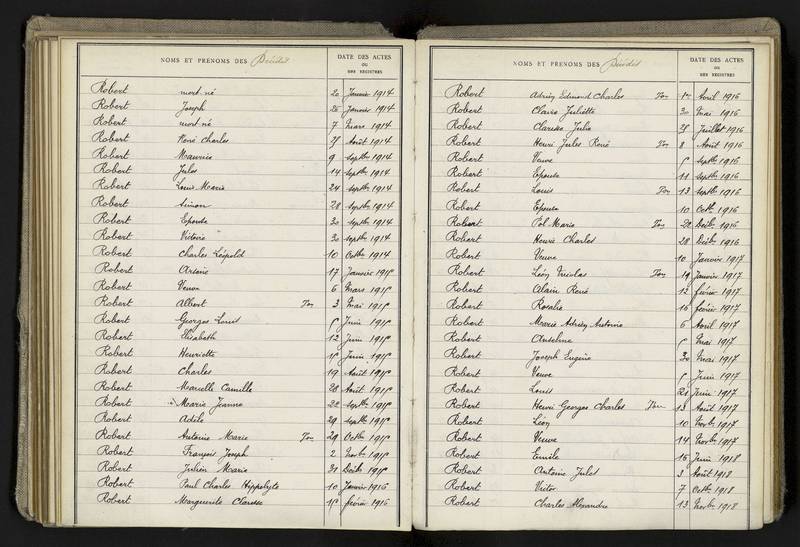 NOMS ET PRÉNOMS DES Décédés
DATE DES ACTES
OU
DES REGISTRES
Robert mort-né 20 Janvier 1914
Robert Joseph 25 Janvier 1914
Robert mort-né 7 Mars 1914
Robert René Charles Août 1914
Robert Maurice 9 septbre 1914
Robert Jules 14 septbre 1914
Robert Louis Marie 24 septbre 1914
Robert Simon 28 septbre 1914
Robert Epouse 30 septbre 1914
Robert Victoire 30 septbre 1914
Robert Charles Léopold 10 Octbre 1914
Robert Arsène 17 Janvier 1915
Robert Veuve 6 Mars 1915
Robert Albert 3 Mai 1915
Robert Georges Louis 5 Juin 1915
Robert Elisabeth 12 Juin 1915
Robert Henriette 15 Juin 1915
Robert Charles 19 Août 1915
Robert Marcelle Camille 28 Août 1915
Robert Marie Jeanne 22 septbre 1915
Robert Adèle 29 septbre 1915
Robert Antoine Marie 29 Octbre 1915
Robert François Joseph 2 Novbre 1915
Robert Julien Marie 31 Décbre 1915
Robert Paul Charles Hippolyte 10 Janvier 1916
Robert Marguerite Clarisse 15 février 1916
NOMS ET PRÉNOMS DES Décédés
DATE DES ACTES
OU
DES REGISTRES
Robert Adrien Edmond Charles 1er Avril 1916
Robert Claire Juliette Mai 1916
Robert Clarisse Julie Juillet 1916
Robert Henri Jules René 8 Août 1916
Robert Veuve 5 septbre 1916
Robert Epouse 11 septbre 1916
Robert Louis 13 septbre 1916
Robert Epouse 10 Octbre 1916
Robert Pol Marie 20 Décbre 1916
Robert Henri Charles 28 Décbre 1916
Robert Veuve 10 Janvier 1917
Robert Léon Nicolas 19 Janvier 1917
Robert Alain René 12 février 1917
Robert Rosalie 16 février 1917
Robert Marie Adrien Antoine 6 Avril 1917
Robert Anselme 5 Mai 1917
Robert Joseph Eugène 30 Mai 1917
Robert Veuve 5 Juin 1917
Robert Louis 21 Juin 1917
Robert Henri Georges Charles 13 Août 1917
Robert Léon 10 Novbre 1917
Robert Veuve 14 Novbre 1917
Robert Emile 16 Juin 1918
Robert Antoine Jules 3 Août 1918
Robert Victor 7 Octbre 1918
Robert Charles Alexandre 13 Novbre 1918